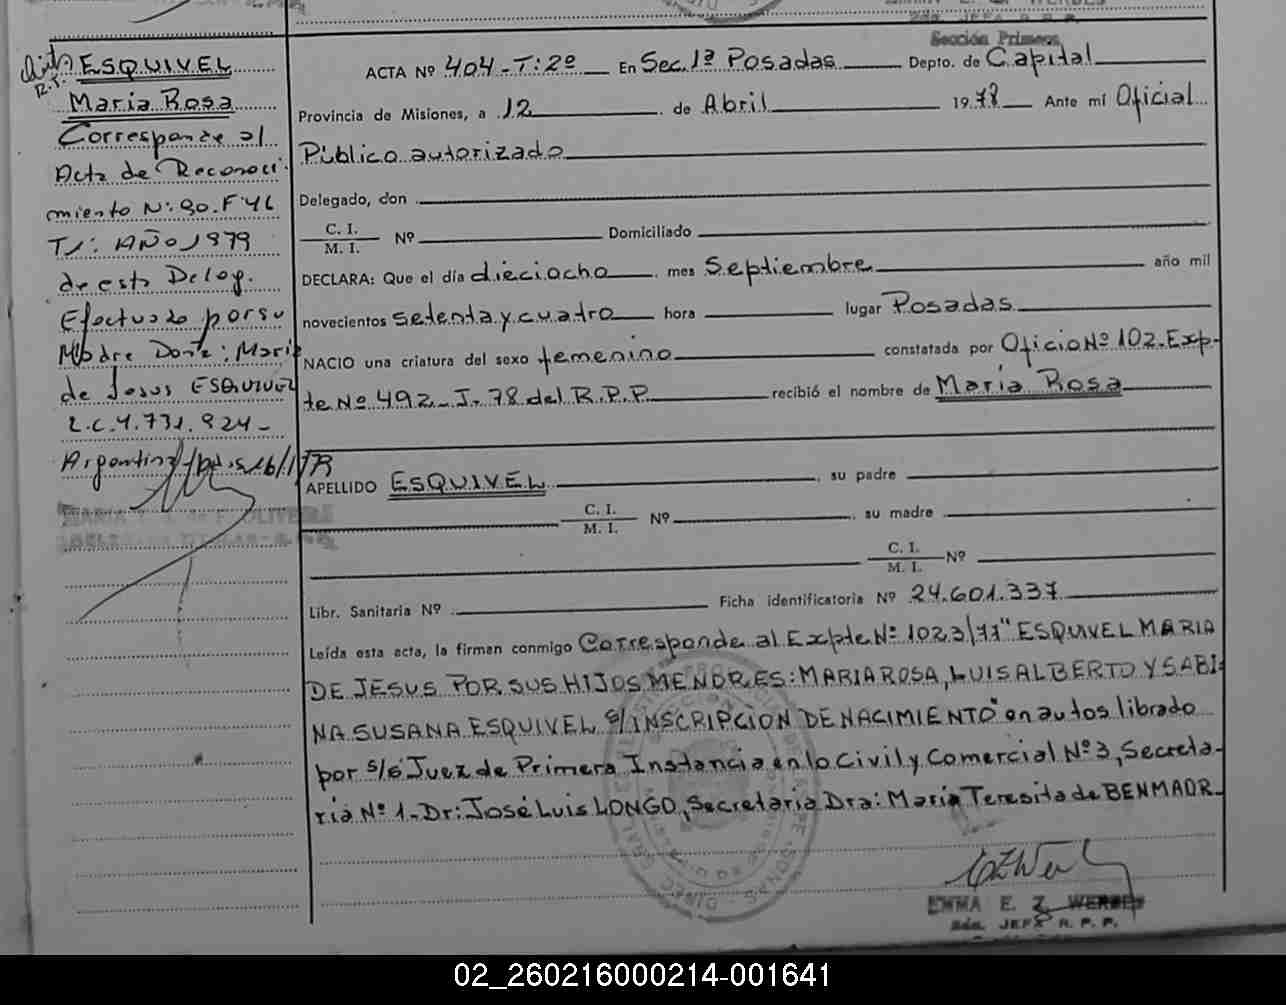 Sección Primera
ESQUIVEL
María Rosa
Corresponde al
Acta de Reconoci-
miento Nº: 90. F: 46
T1: AÑO 1979
de esta Deleg.
Efectuado por su
Madre Doña: María
de Jesus ESQUIVEL
L.C. 4.731.924-
Argentina
ACTA Nº 404-T:2º En Sec. 1ª Posadas Depto. de Capital
Provincia de Misiones, a 12 de Abril 1978 Ante mí Oficial
Público autorizado
Delegado, don
C. I.
M. I. Nº Domiciliado
DECLARA: Que el día dieciocho mes Septiembre año mil
novecientos setenta y cuatro hora lugar Posadas
NACIO una criatura del sexo femenino constatada por Oficio Nº 102. Exp-
te Nº 492-J-78 del R.P.P. recibió el nombre de María Rosa
APELLIDO ESQUIVEL, su padre
C. I.
M. I. Nº , su madre
C. I.
M. I. Nº
Libr. Sanitaria Nº Ficha identificatoria Nº 24.601.337
Leída esta acta, la firman conmigo Corresponde al Expte Nº 1023/77 "ESQUIVEL MARIA
DE JESUS POR SUS HIJOS MENORES: MARIA ROSA, LUIS ALBERTO Y SABI-
NA SUSANA ESQUIVEL s/INSCRIPCION DE NACIMIENTO" en autos librado
por S/S Juez de Primera Instancia en lo Civil y Comercial Nº 3, Secreta-
ria Nº 1- Dr: José Luis LONGO, Secretaria Dra: María Teresita de BENMAOR-
EMMA E. Z. WERBES
2da. JEFA R. P. P.
02_260216000214-001641